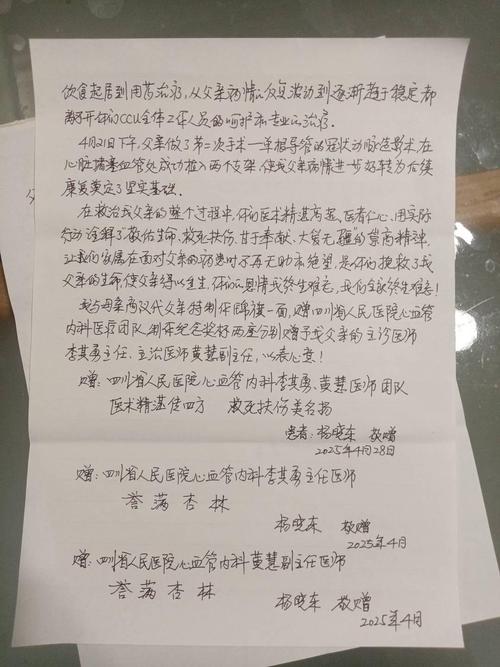 饮食起居到用药治疗，从父亲病情反复波动到逐渐趋于稳定都
离不开你们CCU全体工作人员的呵护和专业的治疗。
4月21日下午，父亲做了第二次手术—单根导管的冠状动脉造影术，在
心脏堵塞血管处成功植入两个支架，使我父亲病情进一步好转为后续
康复奠定了坚实基础。
在救治我父亲的整个过程中，你们医术精湛高超、医者仁心，用实际
行动诠释了“敬佑生命、救死扶伤、甘于奉献、大爱无疆”的崇高精神，
让我们家属在面对父亲的病患时不再无助和绝望，是你们挽救了我
父亲的生命，使父亲得以重生，你们的恩情我终生难忘，我们全家终生难忘！
我与母亲商议代父亲特制作锦旗一面，赠四川省人民医院心血管
内科医疗团队，制作纪念奖杯两座分别赠予我父亲的主诊医师
李其勇主任、主治医师黄慧副主任，以表心意！
赠：四川省人民医院心血管内科李其勇、黄慧医师团队
医术精湛传四方 救死扶伤美名扬
患者：杨晓东 敬赠
2025年4月28日
赠：四川省人民医院心血管内科李其勇主任医师
誉满杏林
杨晓东 敬赠
2025年4月
赠：四川省人民医院心血管内科黄慧副主任医师
誉满杏林
杨晓东 敬赠
2025年4月